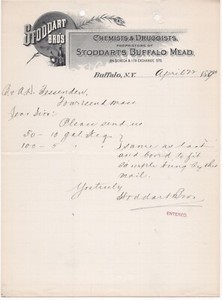 STODDART
BROS
CHEMISTS & DRUGGISTS,
PROPRIETORS OF
STODDARTS BUFFALO MEAD.
Buffalo, N.Y. April 189
Mr A. D. Fessenden,
Townsend Mass
Dear Sirs:
Please send us
50 - 10 gal Kegs
100 - 5 " " } same as last
and bored to fit
sample bung by this
mail.
Yours truly
Stoddart Bros.
ENTERED